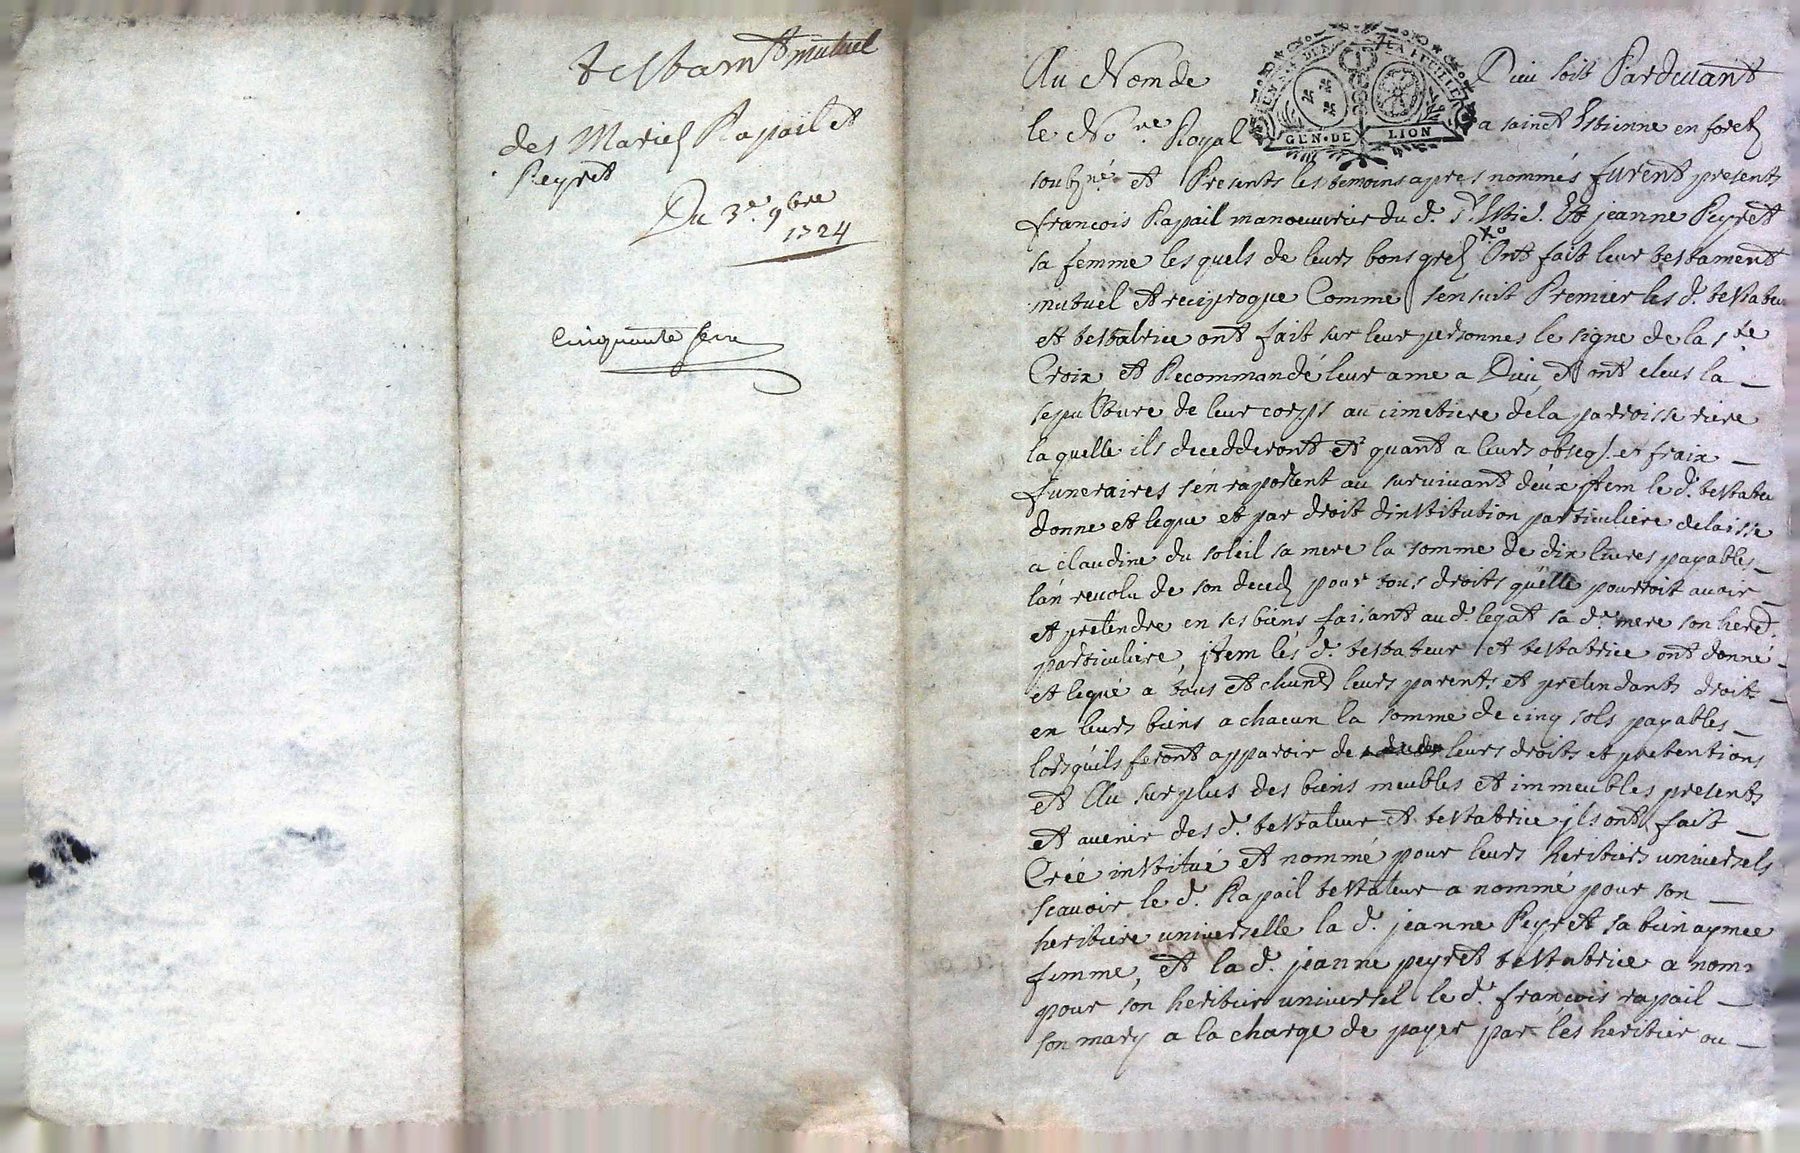 testam.t mutuel
des Mariés Rapail et
Peyret
Du 3.e 9bre
1724
Cinquante
Au Nom de Dieu soit Pardevant
GEN.DE LION
le No.re Royal a sainct Estienne en forests
soubz.né et Presents les temoins apres nommés furent presents
françois Rapail manouvrier du d. S.t Estie. Et jeanne Peyret
sa femme lesquels de leurs bons grez Ont fait leur testament
mutuel et reciproque Comme sensuit Premier les d. testateur
et testatrice ont fait sur leur personnes le signe de la s.te
Croix et Recommandé leur ame a Dieu, et ont eleus la
sepulture de leur corps au cimetiere de la parroisse riere
laquelle ils decedderont et quant a leurs obseq. et fraix
funeraires s'en raportent au survivant d'eux jtem le d. testateu
donne et legue et par droit dinstitution particuliere delaisse
a claudine du soleil sa mere la somme de dix livres payables
l'an revolu de son decedz pour tous droits qu'elle pourroit avoir
et pretendre en ses biens faisant au d. legat sa d.e mere son hered.
particuliere, jtem les d. testateur et testatrice ont donné
et legué a tous et chuns leurs parents et pretendants droits
en leurs biens a chacun la somme de cinq sols payables
lorsqu'ils feront apparoir de leurs droits et pretentions
et Au surplus des biens meubles et immeubles presents
et avenir des d. testateur et testatrice jls ont fait
Créé institué et nommé pour leurs heritiers universels
scavoir le d. Rapail testateur a nommé pour son
heritiere universelle la d. jeanne Peyret sa bien aymee
femme, et la d. jeanne peyret testatrice a nom.
pour son heritier universel le d. françois rapail
son mary a la charge de payer par les heritier ou